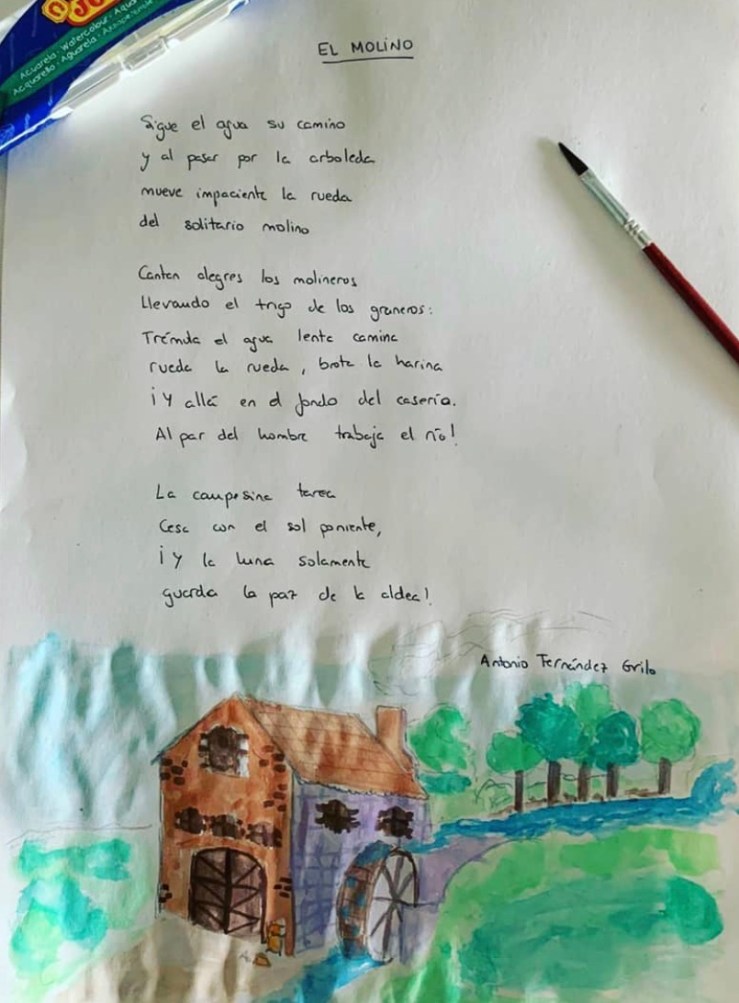 Acuarela · Watercolour · Aqua
Acquarello · Aguarela ·
EL MOLINO
Sigue el agua su camino
y al pasar por la arboleda
mueve impaciente la rueda
del solitario molino
Cantan alegres los molineros
Llevando el trigo de los graneros:
Trémula el agua lenta camina
rueda la rueda, brota la harina
¡Y allá en el fondo del caserío.
Al par del hombre trabaja el río!
La campesina tarea
Cesa con el sol poniente,
¡Y la luna solamente
guarda la paz de la aldea!
Antonio Fernández Grilo